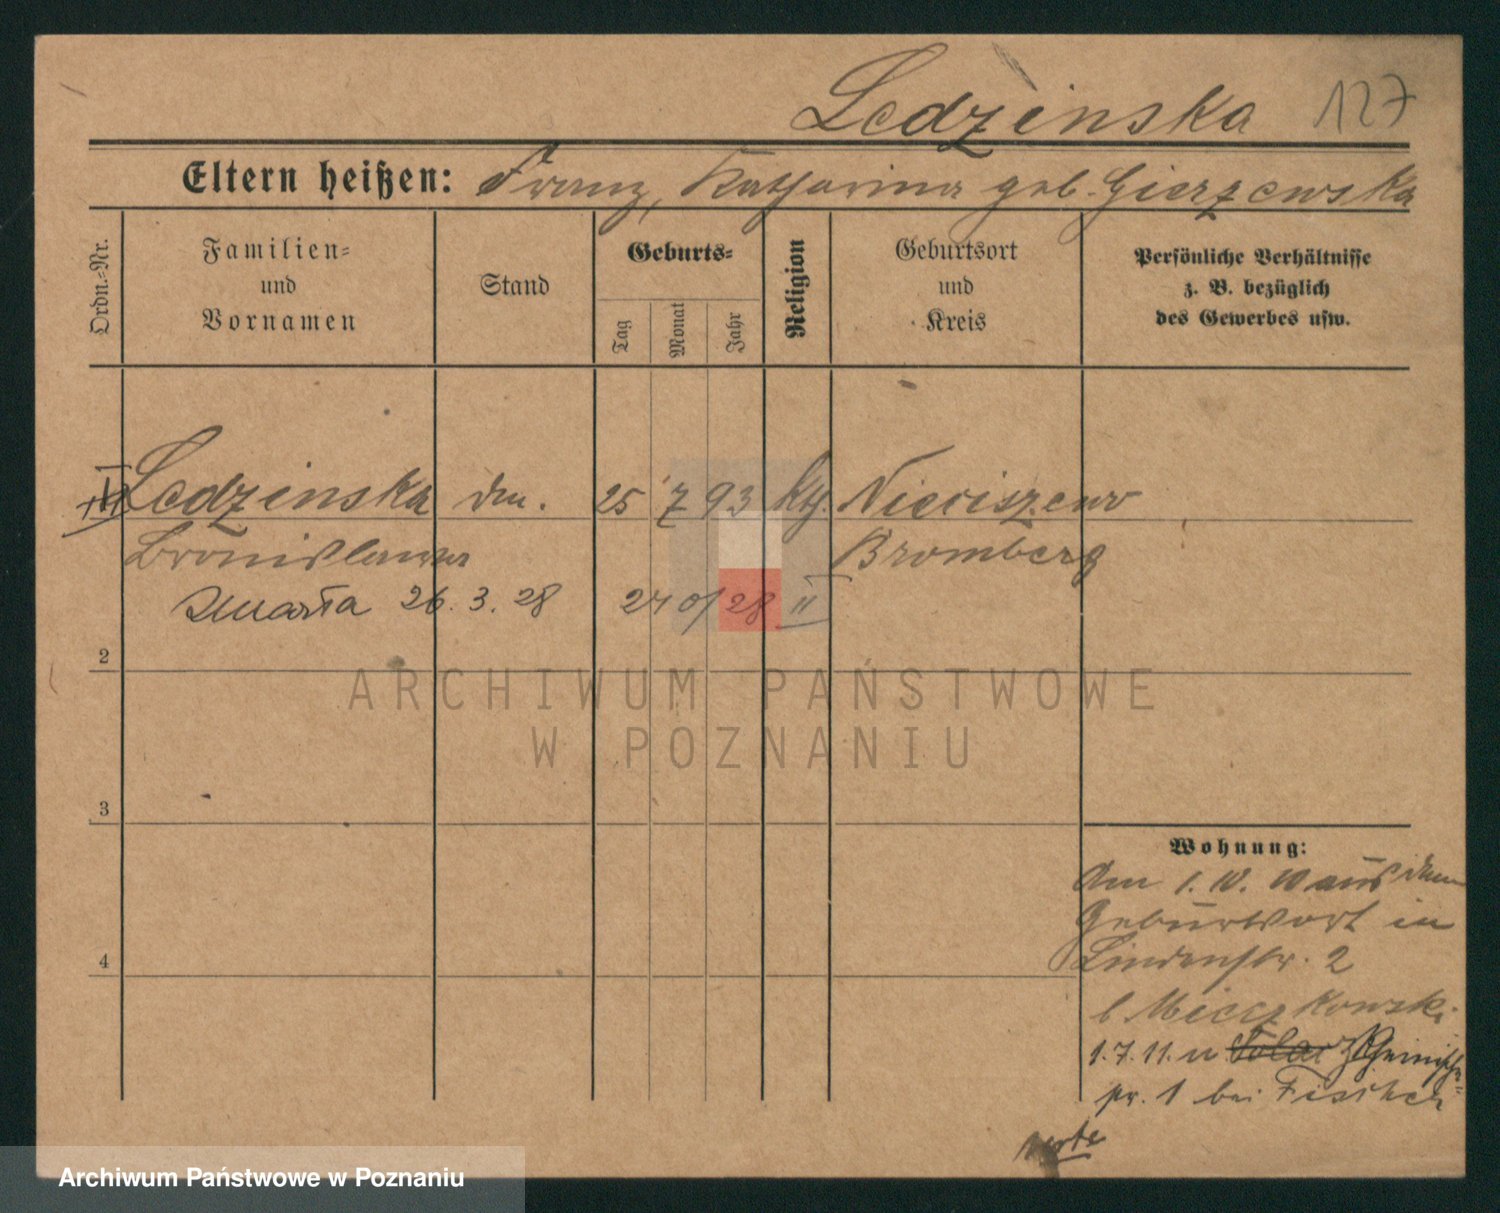 Ledzinska 127
Eltern heißen: Franz, Katharina geb. Gierzewska
Ordn.=Nr.
Familien=
und
Vornamen
Stand
Geburts=
Tag
Monat
Jahr
Religion
Geburtsort
und
Kreis
Persönliche Verhältnisse
z. B. bezüglich
des Gewerbes usw.
Ledzinska 25 7 93 kth. Nieciszewo
Bronislawa Bromberg
Zmarła 26. 3. 28 28 II
2
ARCHIWUM PAŃSTWOWE
W POZNANIU
3
4
Wohnung:
Am 1. 10. 10 aus dem
Geburtsort in
Lindenstr. 2
b Mieczkowski
1. 7. 11. n
pr. 1 bei Fischer
verte
Archiwum Państwowe w Poznaniu